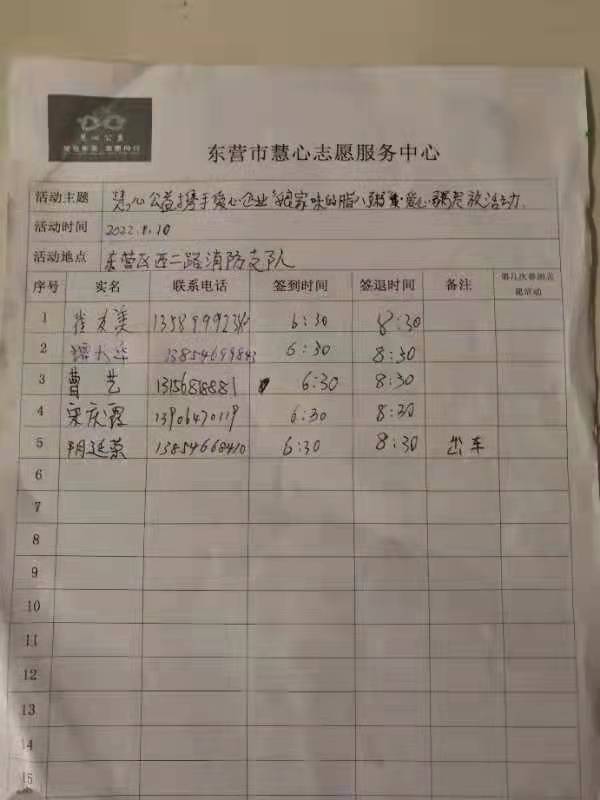 慧心公益
东营市慧心志愿服务中心
活动主题 慧心公益携手爱心企业“娘家味的腊八粥”爱心粥发放活动
活动时间 2022.1.10
活动地点 东营区西二路消防支队
序号 实名 联系电话 签到时间 签退时间 备注 第几次参加志愿活动
1 6:30 8:30
2 6:30 8:30
3 曹艺 6:30 8:30
4 宋庆霞 13906470119 6:30 8:30
5 13854668410 6:30 8:30 出车
6
7
8
9
10
11
12
13
14
15